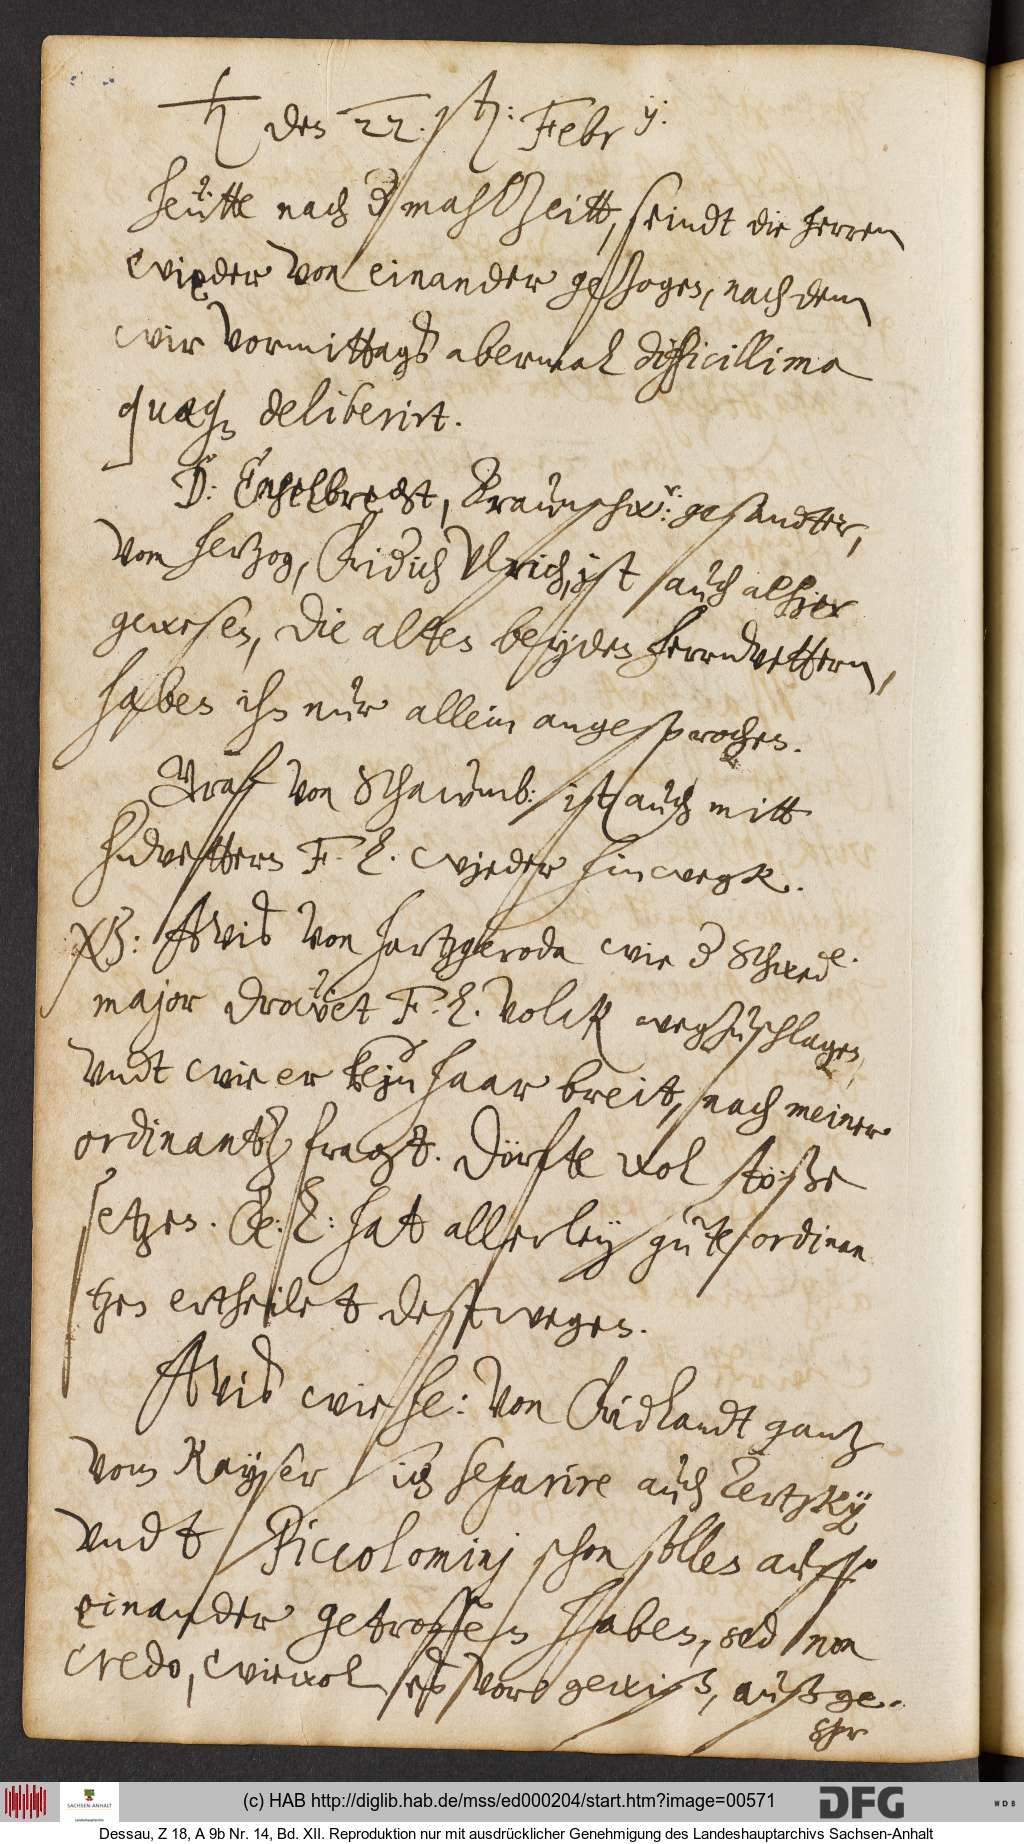 ♄ den 22. sten: Febr y:
Heütte nach der mahlzeitt, seindt die herren
wieder von einander gezogen, nach dem
wir vormittags abermal difficillima
quæq deliberirt.
D: Engelbrecht, Braunschw: gesandter,
vom hertzog, Fridrich Ulrich, ist auch alhier
gewesen, die alten beyden herrnvettern,
haben ihn nur allein angesprochen.
Graf von Schawmb: ist auch mitt
hvettern F. L. wieder hinwegk.
XB: Avis von hartzgeroda wie der Schwed e.
major drowet F. L. volck wegzuschlagen,
undt wie er kein haar breit, nach meiner
ordinantz fragt. Dörfte wol stöße
setzen. L: hat allerley gute ordinan
tzen ertheilet desswegen.
Avis wie he: von Fridlandt gantz
vom Kayser sich separire auch Tertzky
undt Piccolominj schon sollen auff
einander getroffen haben, sed non
credo, wiewol es vor gewiß, außge-
spr
(c) HAB http://diglib.hab.de/mss/ed000204/start.htm?image=00571
SACHSEN-ANHALT
Landeshauptarchiv
DFG
WDB
Dessau, Z 18, A 9b Nr. 14, Bd. XII. Reproduktion nur mit ausdrücklicher Genehmigung des Landeshauptarchivs Sachsen-Anhalt